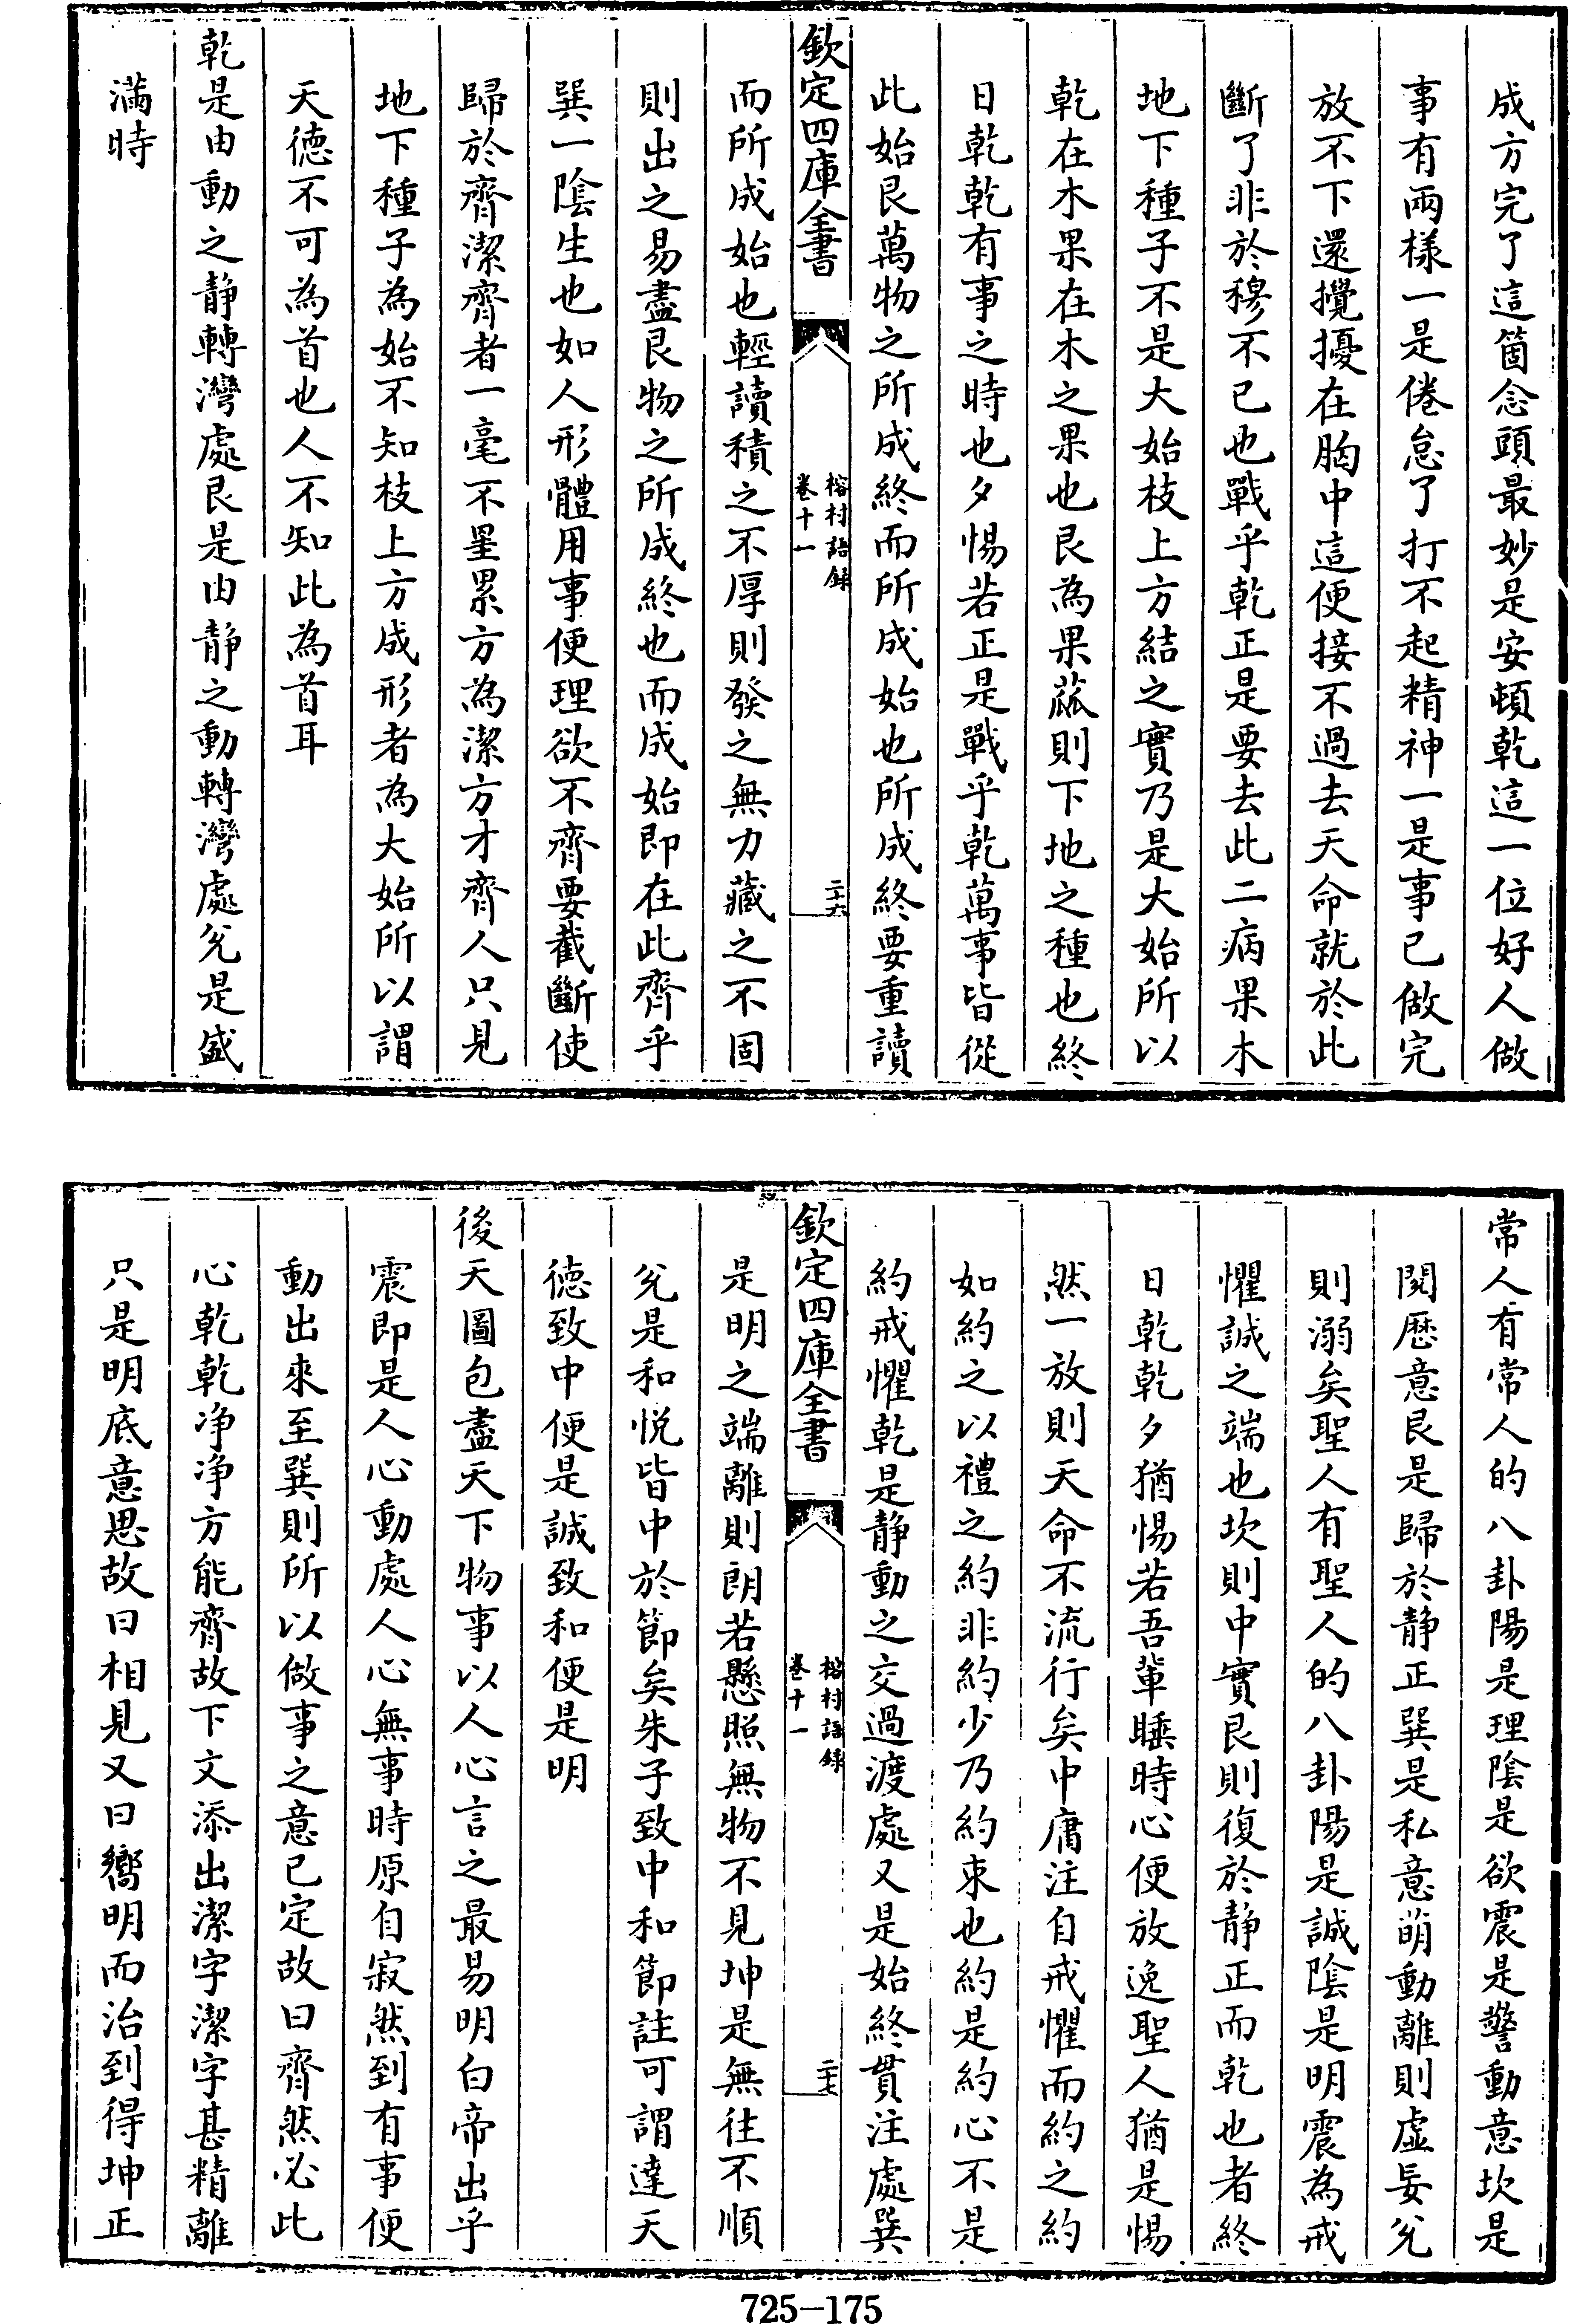 成方完了這箇念頭最妙是安頓乾這一位好人做
事有兩樣一是倦怠了打不起精神一是事已做完
放不下還攪擾在胸中這便接不過去天命就於此
斷了非於穆不已也戰乎乾正是要去此二病果木
地下種子不是大始枝上方結之實乃是大始所以
乾在木果在木之果也艮為果蓏則下地之種也終
日乾乾有事之時也夕惕若正是戰乎乾萬事皆從
此始艮萬物之所成終而所成始也所成終要重讀
欽定四庫全書
榕村語錄
卷十一
二十六
而所成始也輕讀積之不厚則發之無力藏之不固
則出之易盡艮物之所成終也而成始即在此齊乎
巽一陰生也如人形體用事便理欲不齊要截斷使
歸於齊潔齊者一毫不罣累方為潔方才齊人只見
地下種子為始不知枝上方成形者為大始所以謂
天德不可為首也人不知此為首耳
乾是由動之静轉灣處艮是由静之動轉灣處兊是盛
滿時
常人有常人的八卦陽是理陰是欲震是警動意坎是
閱歷意艮是歸於静正巽是私意萌動離則虛妄兊
則溺矣聖人有聖人的八卦陽是誠陰是明震為戒
懼誠之端也坎則中實艮則復於静正而乾也者終
日乾乾夕猶惕若吾輩睡時心便放逸聖人猶是惕
然一放則天命不流行矣中庸注自戒懼而約之約
如約之以禮之約非約少乃約束也約是約心不是
約戒懼乾是静動之交過渡處又是始終貫注處巽
欽定四庫全書
榕村語錄
卷十一
二十七
是明之端離則朗若懸照無物不見坤是無往不順
兊是和悅皆中於節矣朱子致中和節註可謂達天
德致中便是誠致和便是明
後天圖包盡天下物事以人心言之最易明白帝出乎
震即是人心動處人心無事時原自寂然到有事便
動出來至巽則所以做事之意已定故曰齊然必此
心乾乾净净方能齊故下文添出潔字潔字甚精離
只是明底意思故曰相見又曰嚮明而治到得坤正
725-175